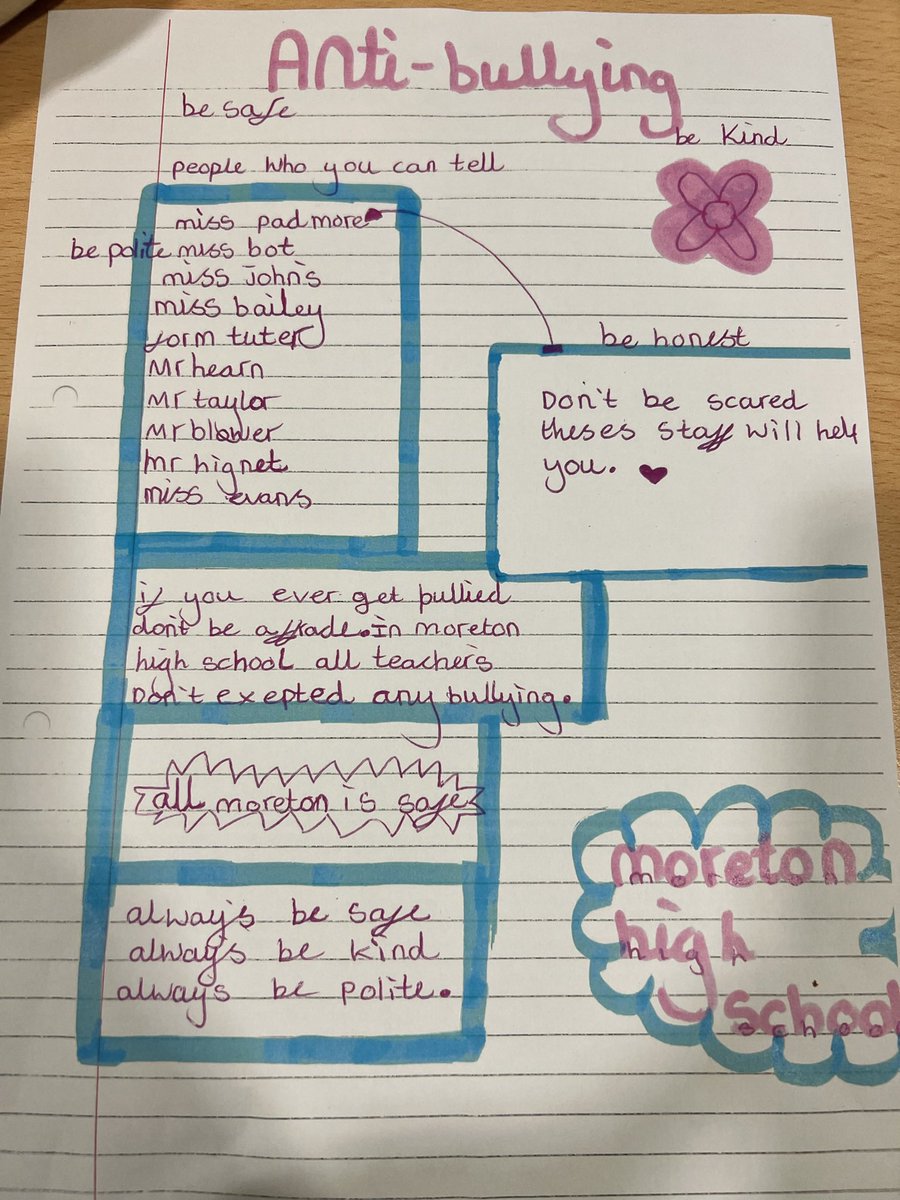 Anti-bullying
be safe
be kind
people who you can tell
miss padmore
be polite miss bot
miss john's
miss bailey
form tuter
Mr hearn
Mr taylor
Mr bllower
mr hignet
miss evans
be honest
Don't be scared
theses staff will help
you.
if you ever get bullied
don't be affrade. In moreton
high school all teacher's
Don't exepted any bullying.
all moreton is safe
always be safe
always be kind
always be polite.
moreton
high
school